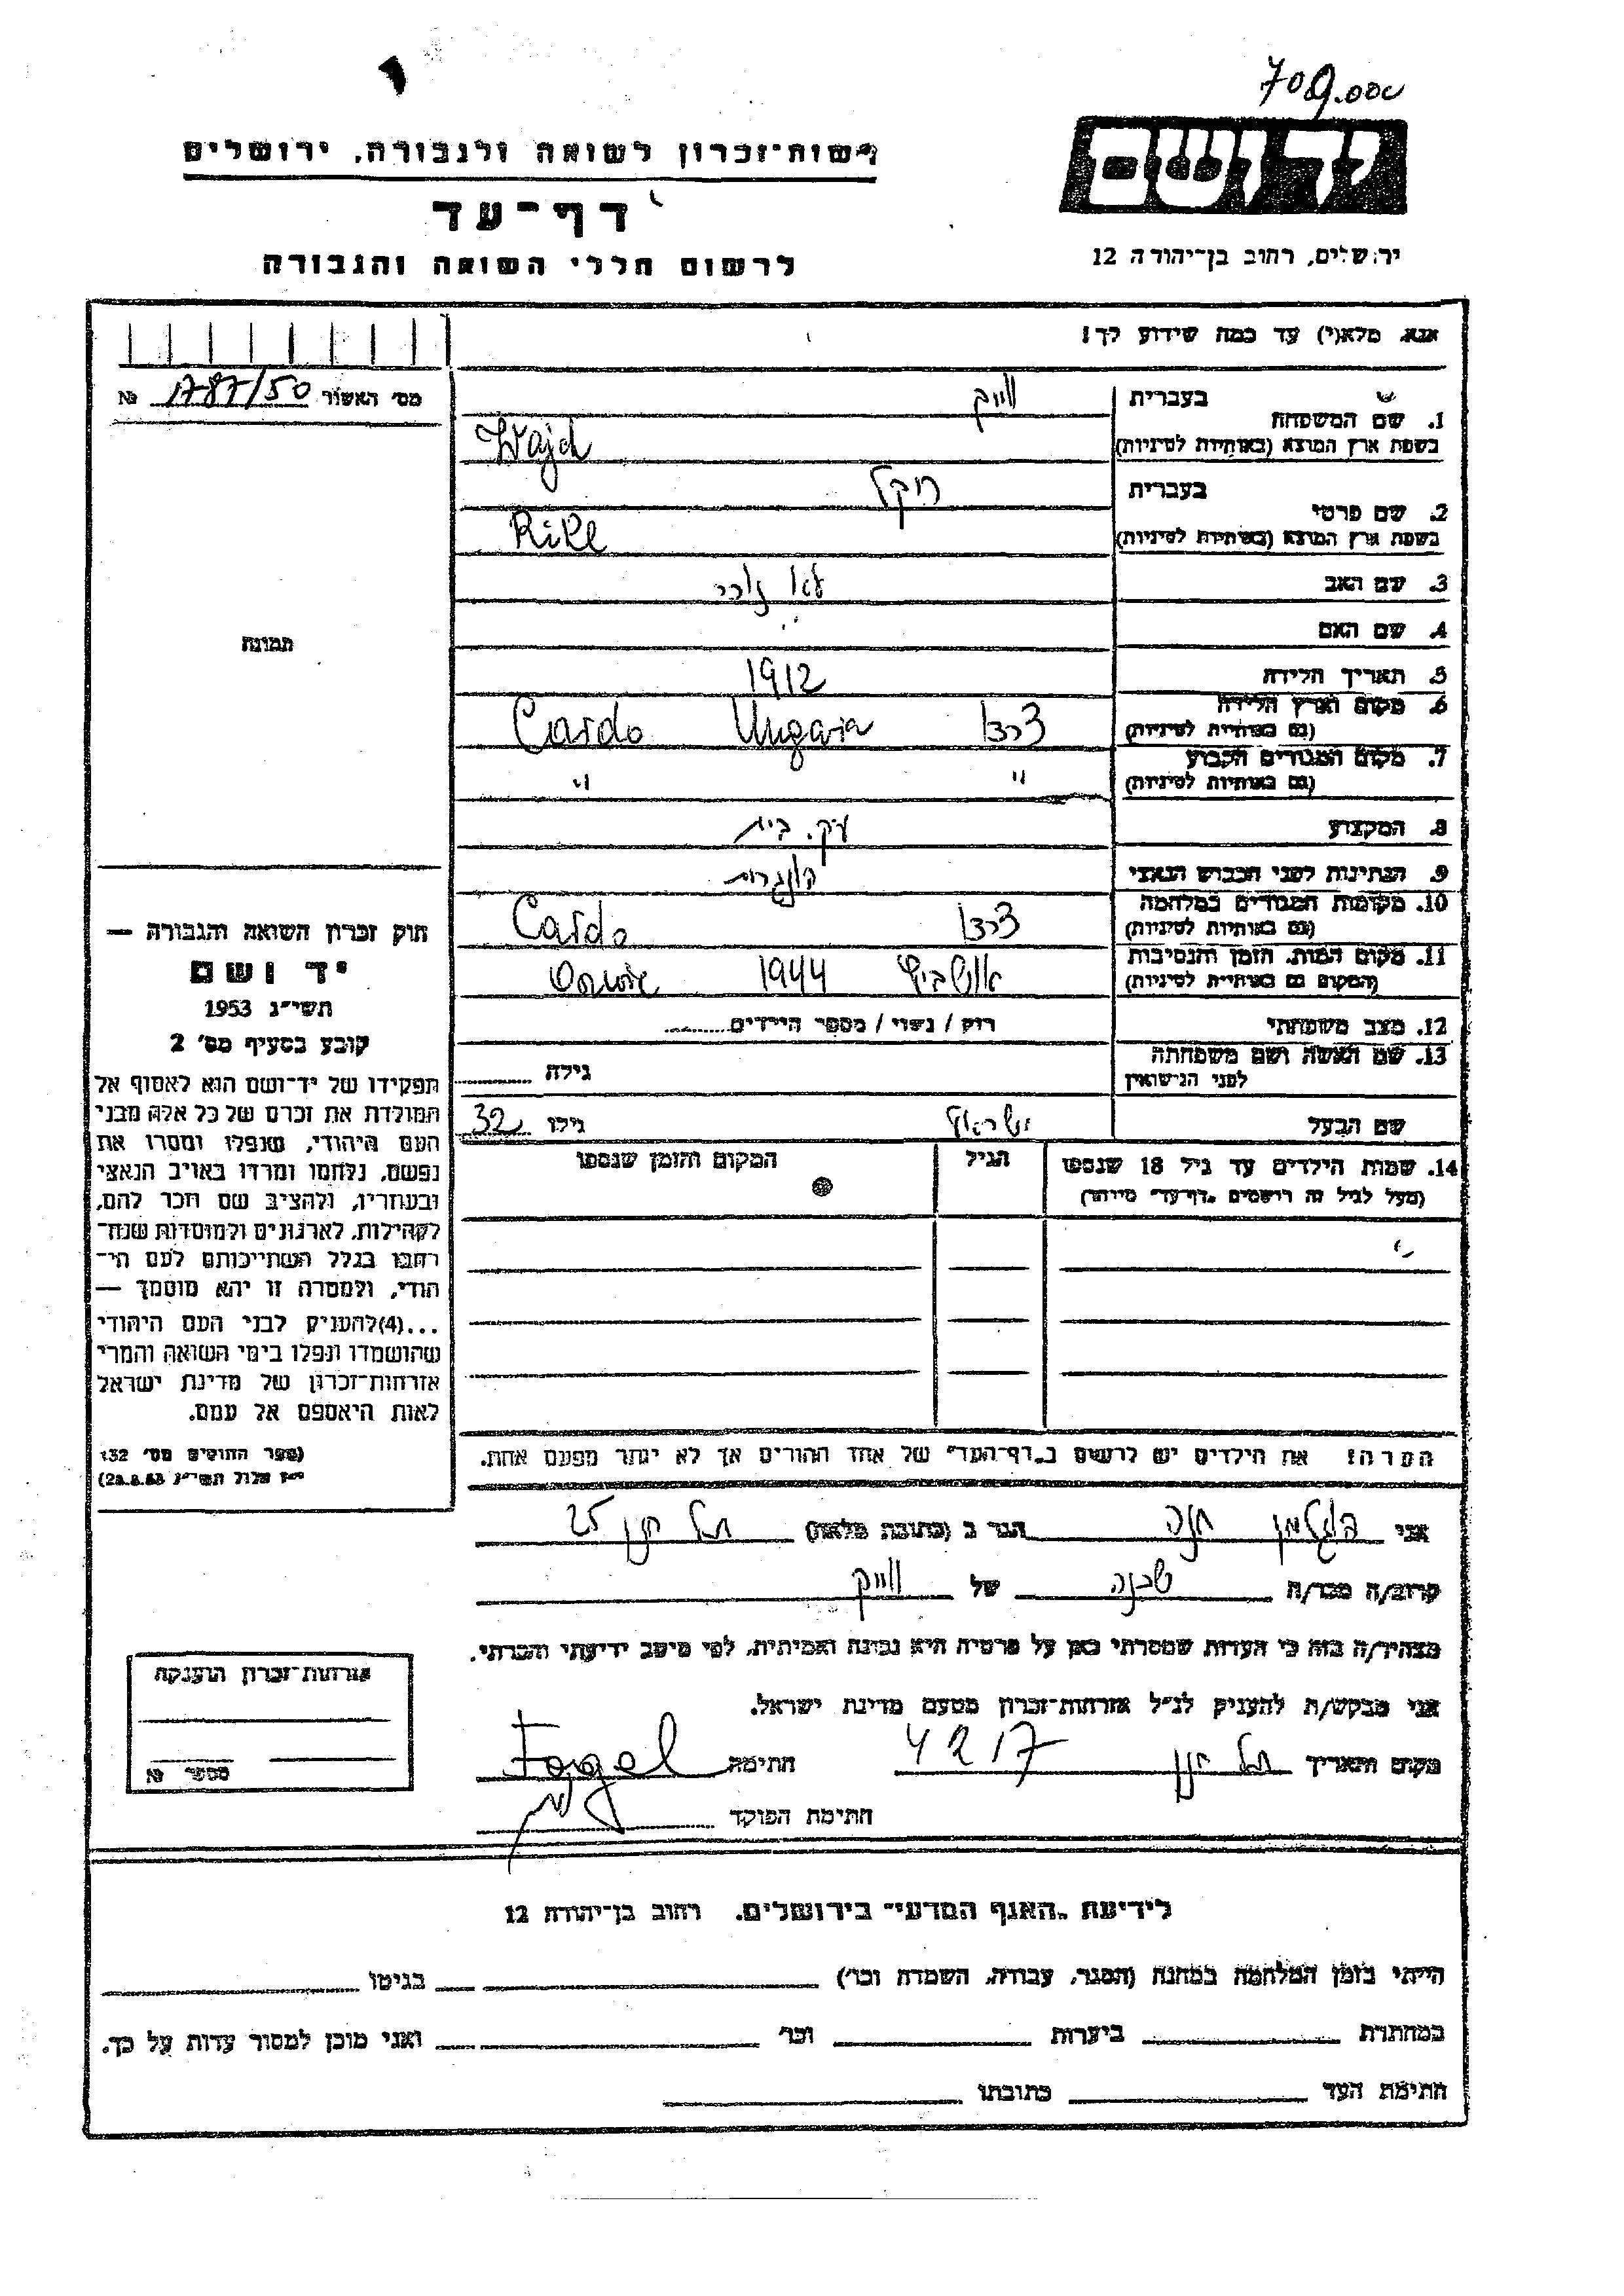 709.000
יד ושם
ירושלים, רחוב בן־יהודה 12
רשות־זכרון לשואה ולגבורה, ירושלים
דף־עד
לרשום חללי השואה והגבורה
אנא, מלא(י) עד כמה שידוע לך!
מס׳ האשור 1787/50 №
1. שם המשפחה בעברית ווייד
בשפת ארץ המוצא (באותיות לטיניות) Wajd
2. שם פרטי בעברית ריקל
בשפת ארץ המוצא (באותיות לטיניות) Rikl
3. שם האב לא זוכר
4. שם האם ״
5. תאריך הלידה 1912
6. מקום וארץ הלידה (גם באותיות לטיניות) Cardo Ungaria
7. מקום המגורים הקבוע (גם באותיות לטיניות) ״ ״
8. המקצוע עק. בית
9. הנתינות לפני הכבוש הנאצי הונגרית
10. מקומות המגורים במלחמה (גם באותיות לטיניות) Cardo
11. מקום המות, הזמן והנסיבות (המקום גם באותיות לטיניות) אושביץ 1944
12. מצב משפחתי רוק / נשוי / מספר הילדים
13. שם האשה ושם משפחתה לפני הנישואין גילה
שם הבעל ישראל גילו 32
14. שמות הילדים עד גיל 18 שנספו (מעל לגיל זה רושמים „דף־עד״ מיוחד) הגיל המקום והזמן שנספו
הערה: את הילדים יש לרשום ב„דף־העד״ של אחד ההורים אך לא יותר מפעם אחת.
תמונה
חוק זכרון השואה והגבורה —
יד ושם
תשי״ג 1953
קובע בסעיף מס׳ 2
תפקידו של יד־ושם הוא לאסוף אל
המולדת את זכרם של כל אלה מבני
העם היהודי, שנפלו ומסרו את
נפשם, נלחמו ומרדו באויב הנאצי
ובעוזריו, ולהציב שם וזכר להם,
לקהילות, לארגונים ולמוסדות שנח־
רבו בגלל השתייכותם לעם הי־
הודי, ולמטרה זו יהא מוסמך —
...(4) להעניק לבני העם היהודי
שהושמדו ונפלו בימי השואה והמרי
אזרחות־זכרון של מדינת ישראל
לאות היאספם אל עמם.
(ספר החוקים מס׳ 132
י״ז אלול תשי״ג 28.8.53)
אני חנה הגר ב (כתובת מלאה) תל חנן 25
קרוב/ה מכר/ה שכנה של ווייד
מצהיר/ה בזה כי העדות שמסרתי כאן על פרטיה היא נכונה ואמיתית, לפי מיטב ידיעתי והכרתי.
אני מבקש/ת להעניק לנ״ל אזרחות־זכרון מטעם מדינת ישראל.
מקום ותאריך תל חנן חתימה Fogel
חתימת הפוקד
אזרחות־זכרון הוענקה
מספר №
לידיעת „האגף המדעי״ בירושלים, רחוב בן־יהודה 12
הייתי בזמן המלחמה במחנה (הסגר, עבודה, השמדה וכו׳) בגיטו
במחתרת ביערות וכו׳ ואני מוכן למסור עדות על כך.
חתימת העד כתובתו